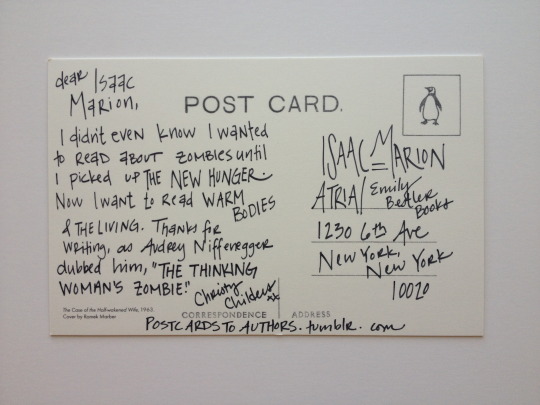 dear Isaac
Marion,
POST CARD.
I didn't even know I wanted
to read about zombies until
I picked up THE NEW HUNGER.
Now I want to read WARM
BODIES
& THE LIVING. Thanks for
writing, as Audrey Niffenegger
dubbed him, "THE THINKING
WOMAN'S ZOMBIE."
Christy
Childers
xx
The Case of the Half-wakened Wife, 1963.
Cover by Romek Marber
CORRESPONDENCE
ISAAC MARION
ATRIA/Emily
Bestler
Books
1230 6th Ave
New York,
New York
10020
ADDRESS
POSTCARDS TO AUTHORS.tumblr.com